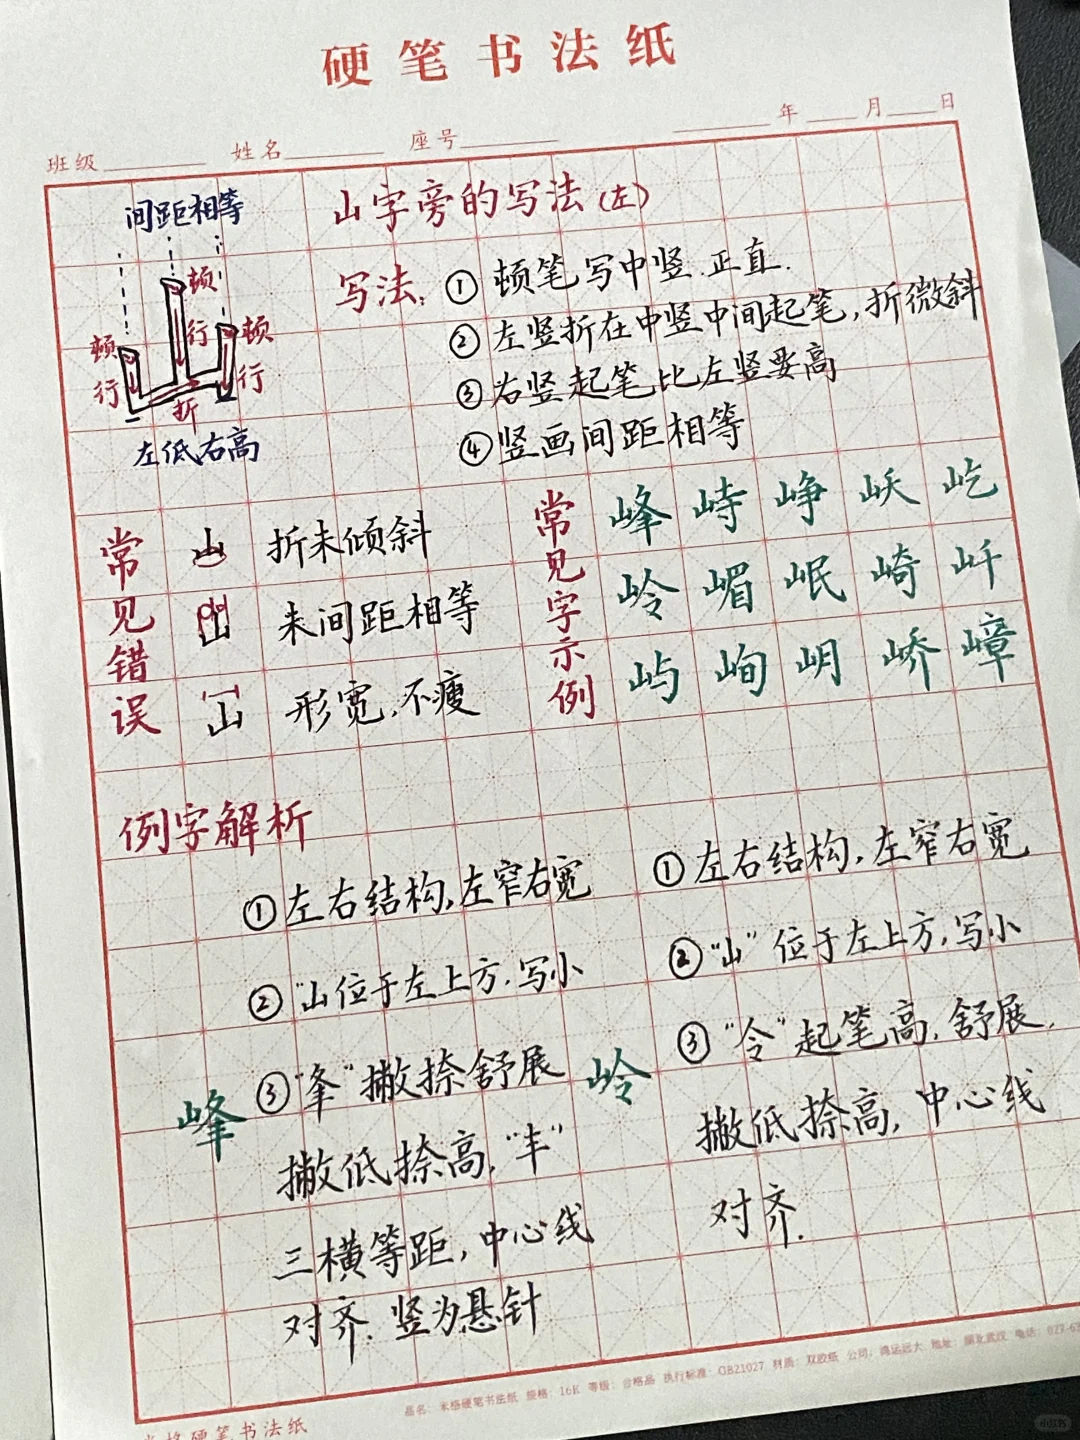 硬笔书法纸
班级 姓名 座号 年 月 日
山字旁的写法(左)
间距相等
顿
行
顿
行
顿
行
折
左低右高
写法:①顿笔写中竖.正直.
②左竖折在中竖中间起笔,折微斜
③右竖起笔比左竖要高
④竖画间距相等
常见错误
山 折未倾斜
山 未间距相等
山 形宽,不瘦
常见字示例
峰 峙 峥 岆 屹
岭 嵋 岷 崎 岍
屿 峋 岄 峤 嶂
例字解析
峰
①左右结构,左窄右宽
②"山位于左上方.写小
③"夆"撇捺舒展
撇低捺高,"丰"
三横等距,中心线
对齐.竖为悬针
岭
①左右结构,左窄右宽
②"山"位于左上方,写小
③"令"起笔高,舒展,
撇低捺高,中心线
对齐.
品名:米格硬笔书法纸 规格:16K 等级:合格品 执行标准:GB21027 材质:双胶纸 公司:鸿运远大 地址:湖北武汉 电话:027-6
米格硬笔书法纸
小红书